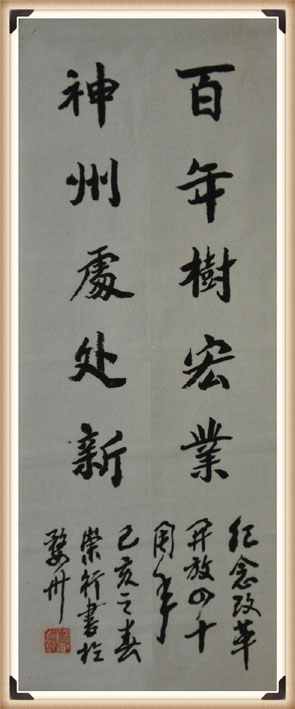 百年樹宏業
神州處处新
纪念改革
开放四十
周年
己亥之春
荣行書於
婺州